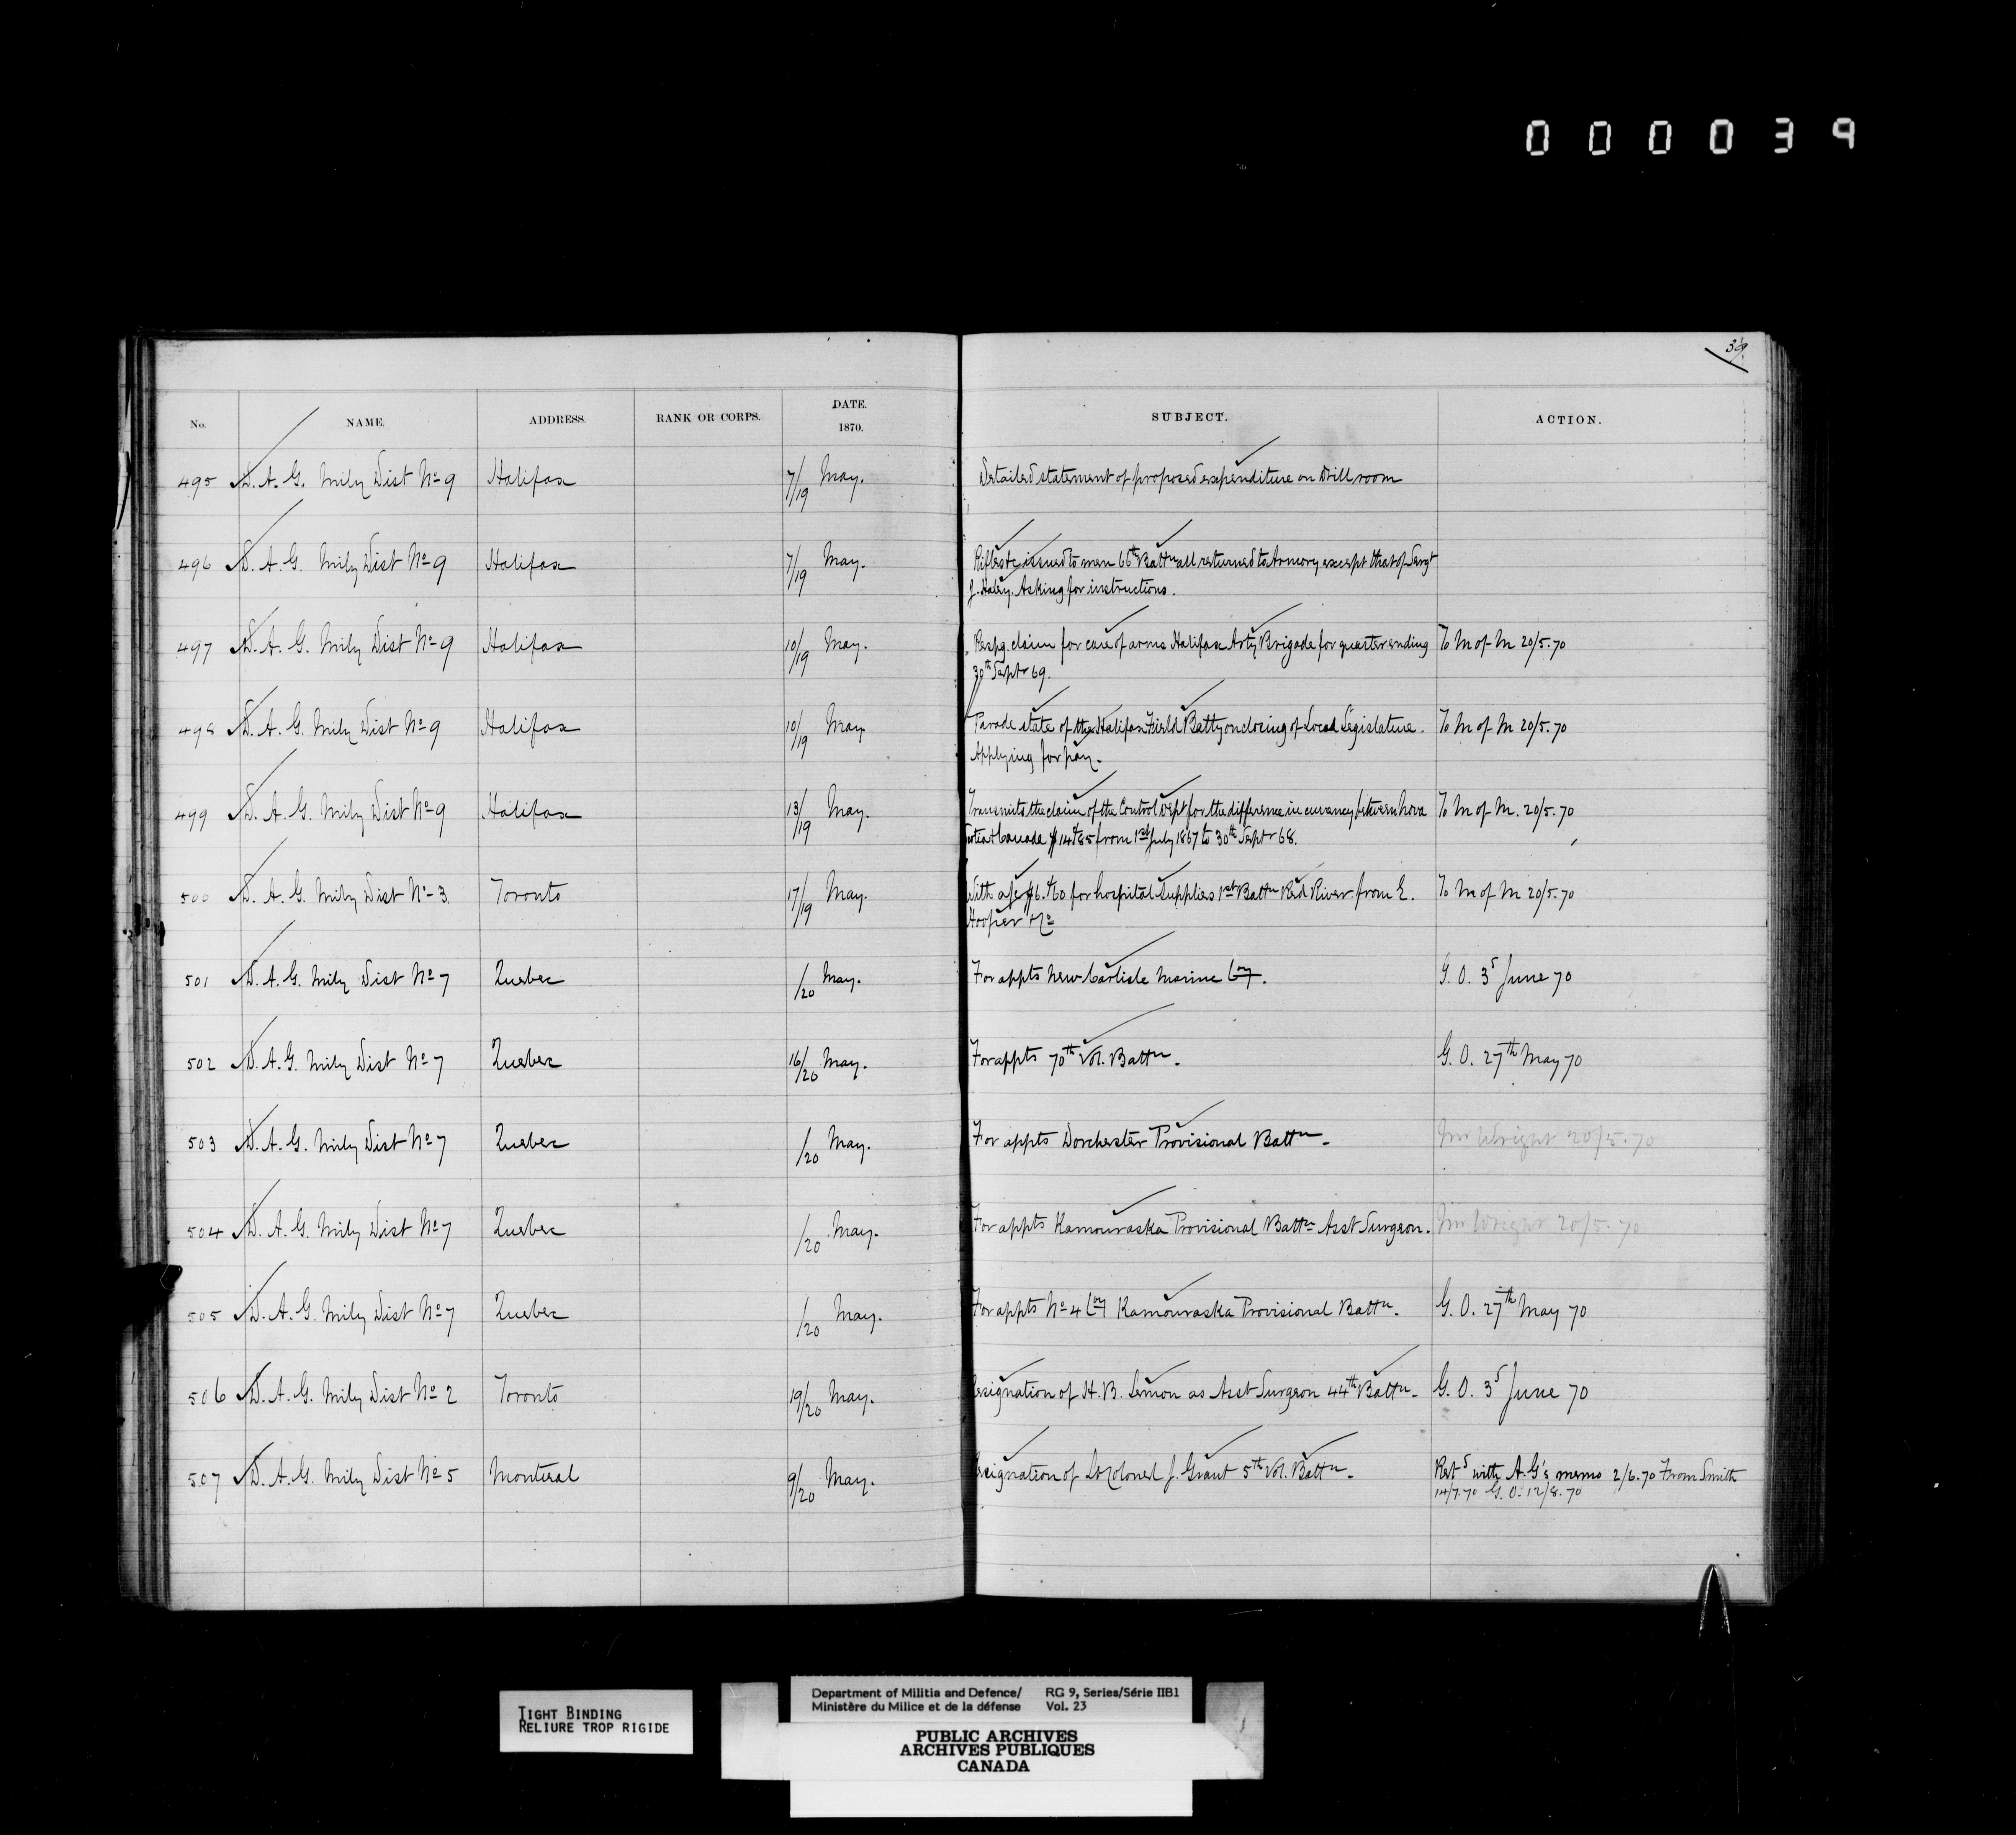 000039
39
No. NAME. ADDRESS. RANK OR CORPS. DATE. 1870. SUBJECT. ACTION.
495 D. A. G. Mily Dist No 9 Halifax 7/19 May. Detailed statement of proposed expenditure on Drill room
496 D. A. G. Mily Dist No 9 Halifax 7/19 May. Rifles &c issued to men 66th Battn all returned to Armory except that of Sergt
J. Haley. Asking for instructions.
497 D. A. G. Mily Dist No 9 Halifax 10/19 May. Respg. claim for care of arms Halifax Arty Brigade for quarter ending To M of M 20/5.70
30th Septr 69.
498 D. A. G. Mily Dist No 9 Halifax 10/19 May Parade state of the Halifax Field Batty on closing of Local Legislature. To M of M 20/5.70
Applying for pay.
499 D. A. G. Mily Dist No 9 Halifax 13/19 May. Transmits the claim of the Control Dept for the difference in currency between Nova To M of M. 20/5.70
Scotia & Canada from 1st July 1867 to 30th Septr 68.
500 D. A. G. Mily Dist No 3. Toronto 17/19 May. With a/c for hospital supplies 1st Battn Red River from E. To M of M 20/5.70
Hooper &Co
501 D. A. G. Mily Dist No 7 Quebec /20 May. For appts New Carlisle Marine Coy. G. O. 3d June 70
502 D. A. G. Mily Dist No 7 Quebec 16/20 May. For appts 70th Vol. Battn. G. O. 27th May 70
503 D. A. G. Mily Dist No 7 Quebec /20 May. For appts Dorchester Provisional Battn. Mr Wright 20/5.70
504 D. A. G. Mily Dist No 7 Quebec /20 May. For appts Kamouraska Provisional Battn Asst Surgeon. Mr Wright 20/5.70
505 D. A. G. Mily Dist No 7 Quebec /20 May. For appts No 4 Coy Kamouraska Provisional Battn. G. O. 27th May 70
506 D. A. G. Mily Dist No 2 Toronto 19/20 May. Resignation of H. B. Lemon as Asst Surgeon 44th Battn. G. O. 3d June 70
507 D. A. G. Mily Dist No 5 Montreal 9/20 May. Resignation of Lt Colonel J. Grant 5th Vol. Battn. Retd with A.G's memo 2/6.70 From Smith
14/7.70 G. O. 12/8.70
TIGHT BINDING
RELIURE TROP RIGIDE
Department of Militia and Defence/ RG 9, Series/Série IIB1
Ministère du Milice et de la défense Vol. 23
PUBLIC ARCHIVES
ARCHIVES PUBLIQUES
CANADA